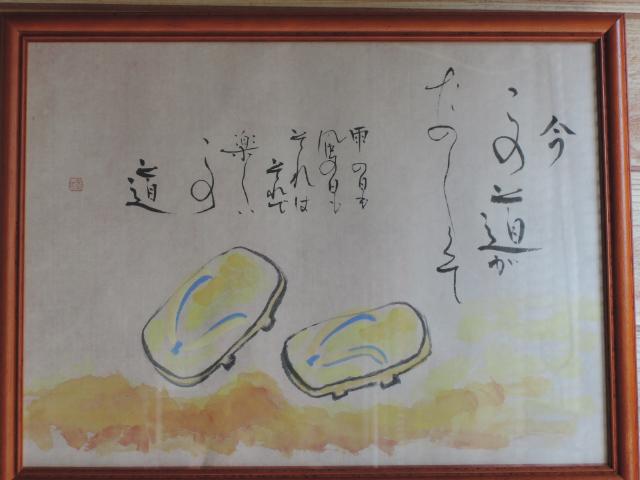 今
この道が
たのしくて
雨の日も
風の日も
それは
それで
楽しい
この
道